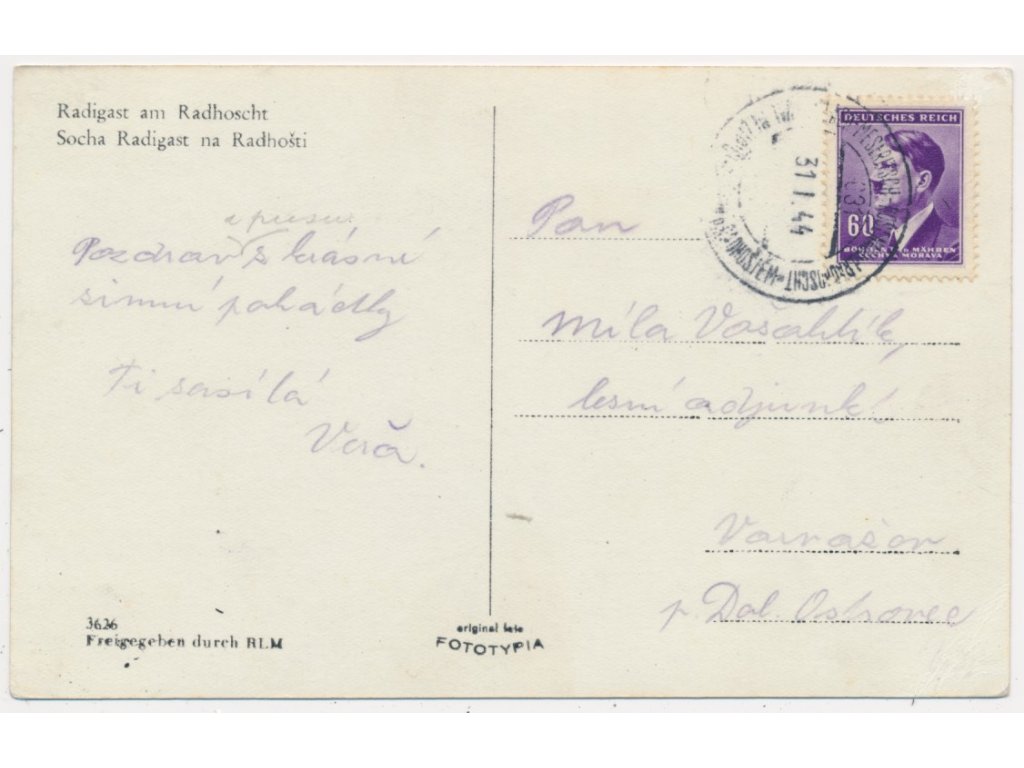 Radigast am Radhoscht
Socha Radigast na Radhošti
a pusu
Pozdrav s krásné
zimní pohádky
Ti zasílá
Věra.
3626
Freigegeben durch RLM
original foto
FOTOTYPIA
31.I.44
DEUTSCHES REICH
60
BÖHMEN U. MÄHREN
ČECHY A MORAVA
Pan
Míla Vošahlík,
lesní adjunkt
Varvažov
p. Dol. Ostrovec